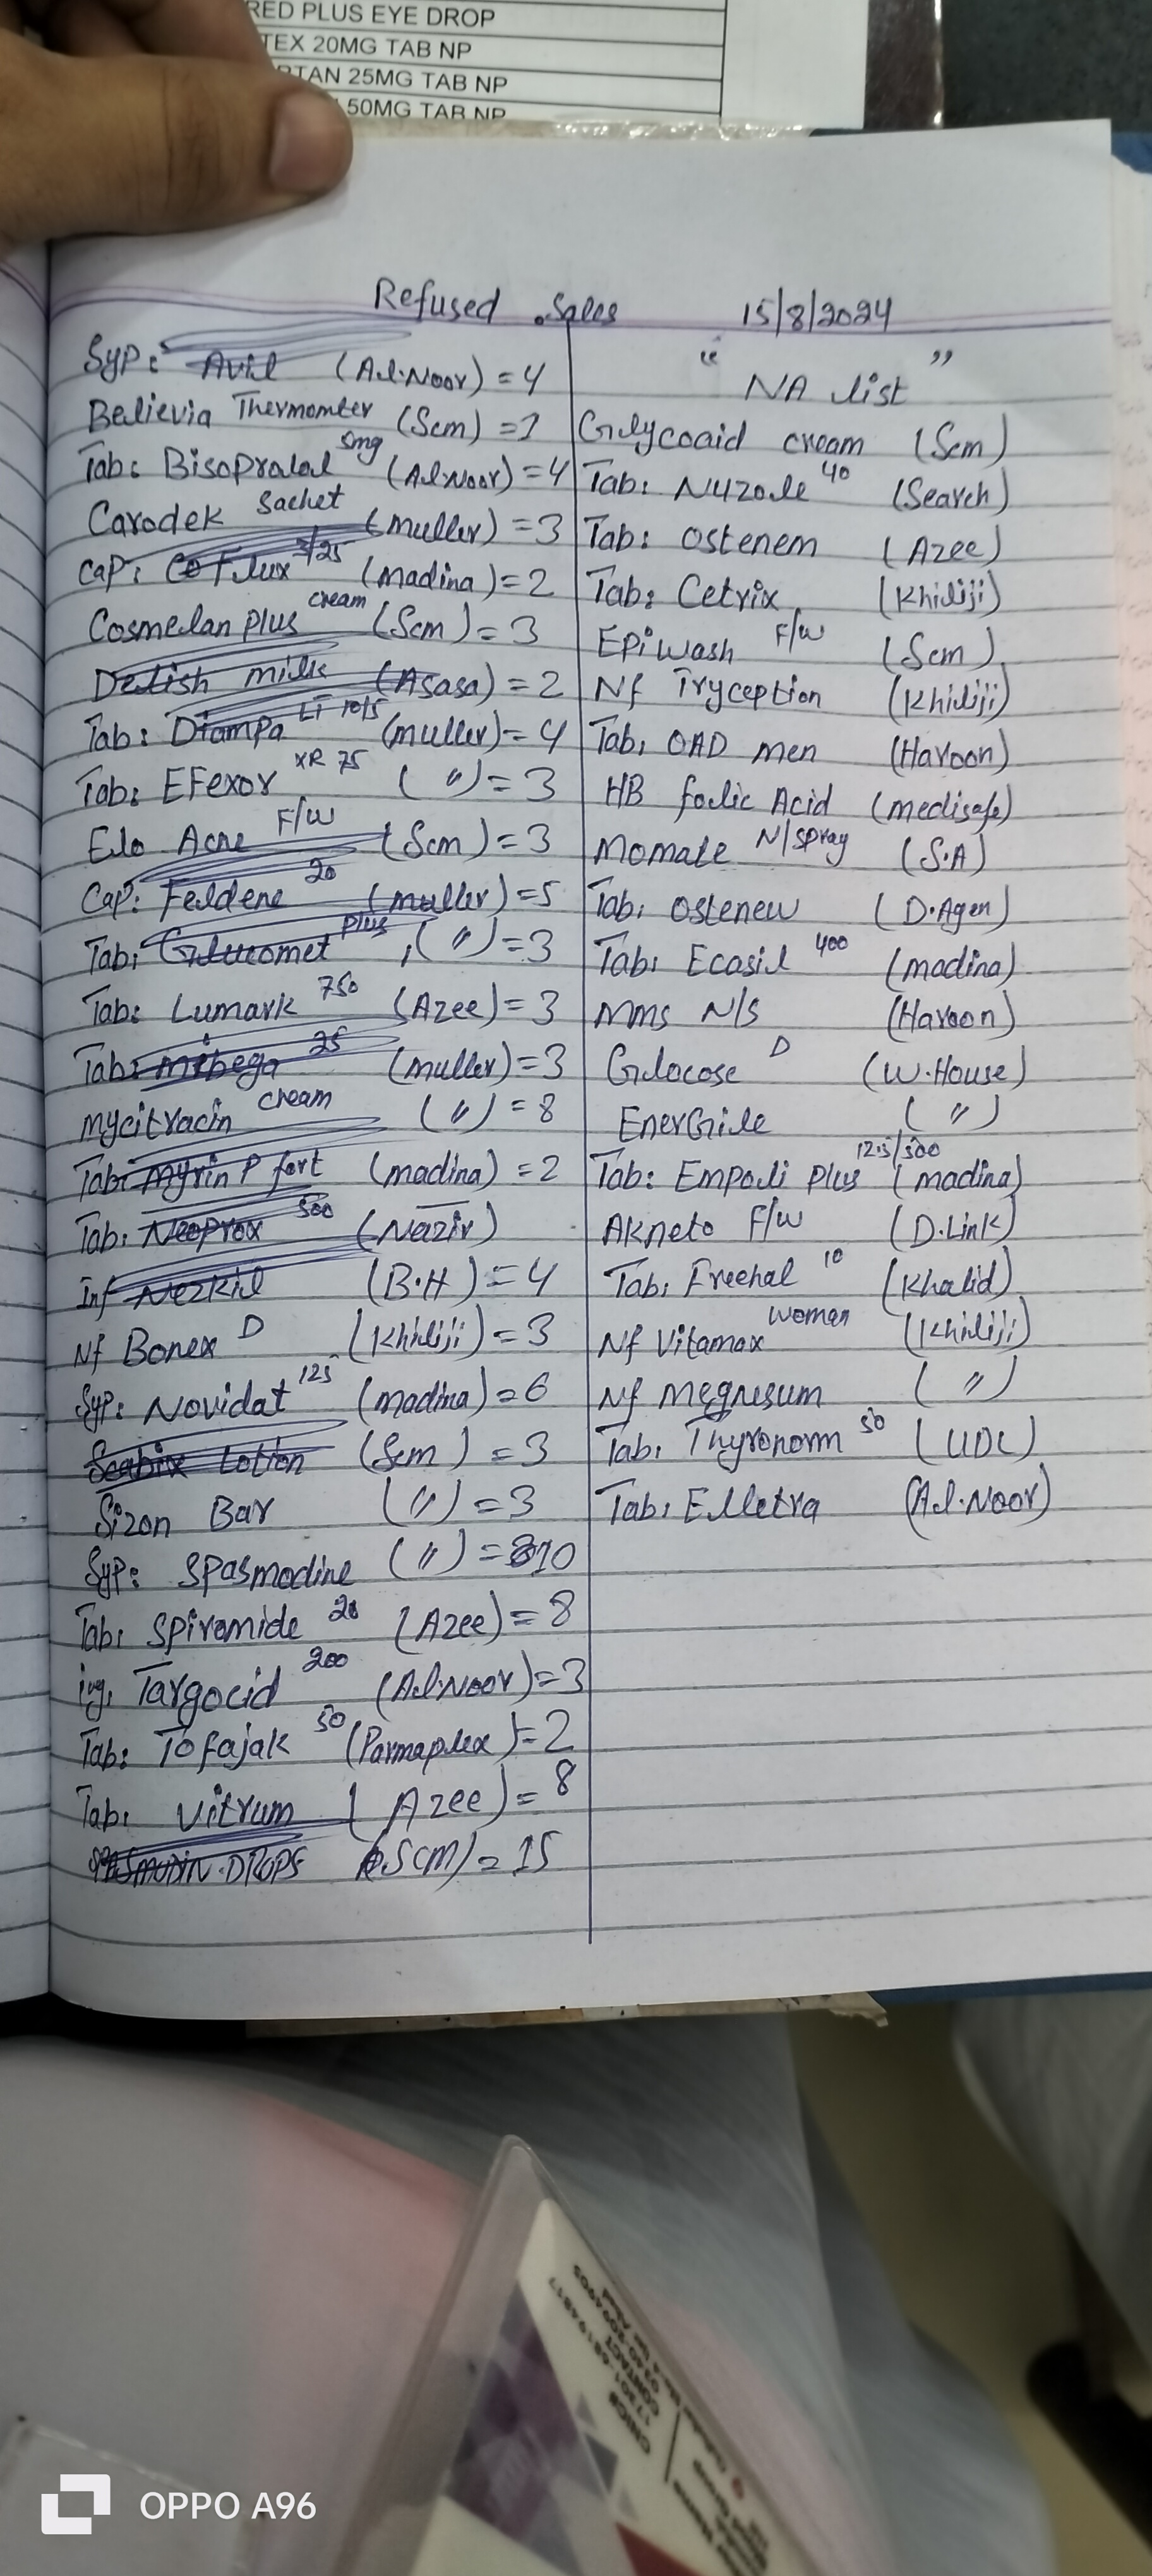 RED PLUS EYE DROP
TEX 20MG TAB NP
RTAN 25MG TAB NP
50MG TAB NP
Refused Sales 15/8/2024
Syp: Avil (Al.Noor) = 4
Believia Thermomter (Scm) = 1
Tab: Bisopralal 5mg (Al.Noor) = 4
Carodek Sachet (muller) = 3
Cap: Co Flux 3/25 (madina) = 2
Cosmelan plus cream (Scm) = 3
Delish milk (Asasa) = 2
Tab: Diampa LT 10/5 (muller) = 4
Tab: EFexor XR 75 ( " ) = 3
Elo Acne F/W (Scm) = 3
Cap: Feldene 20 (muller) = 5
Tab: Glucomet plus ( " ) = 3
Tab: Lumark 750 (Azee) = 3
Tab: mibega 25 (muller) = 3
mycitracin cream ( " ) = 8
Tab: myrin P fort (madina) = 2
Tab: Neoprox 500 (Nazir)
Inf Nezkil (B.H) = 4
Nf Bonex D (Khiliji) = 3
Syp: Novidat 125 (madina) = 6
Scabix Lotion (Scm) = 3
Sizon Bar ( " ) = 3
Syp: Spasmodine ( " ) = 10
Tab: Spiromide 20 (Azee) = 8
inj. Targocid 200 (Al.Noor) = 3
Tab: Tofajak 50 (Parmaplex) = 2
Tab: Vitrum (Azee) = 8
SPASMODIN DROPS (SCM) = 15
" NA list "
Glycoaid cream (Scm)
Tab: Nuzole 40 (Search)
Tab: Ostenem (Azee)
Tab: Cetrix (Khiliji)
EpiWash F/W (Scm)
Nf Tryception (Khiliji)
Tab: OAD men (Haroon)
HB folic Acid (medisafe)
Momate N/spray (S.A)
Tab: Ostenew (D.Agen)
Tab: Ecasil 400 (madina)
Mms N/S (Haroon)
Glocose D (W.House)
EnerGile ( " )
Tab: Empoli plus 12.5/500 (madina)
Akneto F/W (D.Link)
Tab: Freehal 10 (Khalid)
Nf Vitamax woman (Khiliji)
Nf Megnesum ( " )
Tab: Thyronorm 50 (UDL)
Tab: Elletra (Al.Noor)
OPPO A96